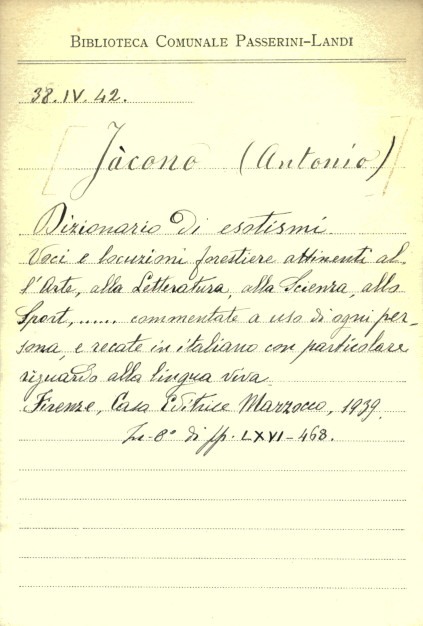 BIBLIOTECA COMUNALE PASSERINI-LANDI
38.IV.42.
[Jàcono (Antonio)]
Dizionario di esotismi
Voci e locuzioni forestiere attinenti al-
l'Arte, alla Letteratura, alla Scienza, allo
Sport,...... commentate a uso di ogni per-
sona, e recate in italiano con particolare
riguardo alla lingua viva
Firenze, Casa Editrice Marzocco, 1939.
In-8° di pp. LXVI-468.